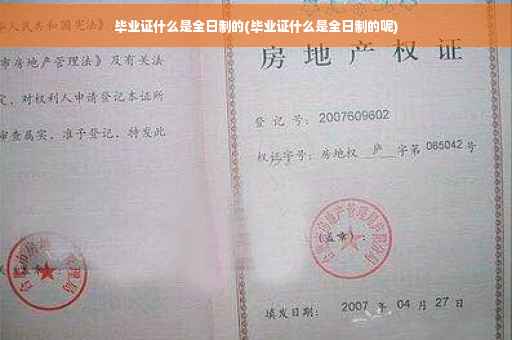 毕业证什么是全日制的(毕业证什么是全日制的呢)
人民共和国宪法》
市房地产管理法》及有关法
定,对权利人申请登记本证所
审查属实,准予登记,特发此
房地产权证
登记号:2007609602
权证字号:房地权 庐 字第 065042 号
(盖章):
填发日期: 2007 年 04 月 27 日